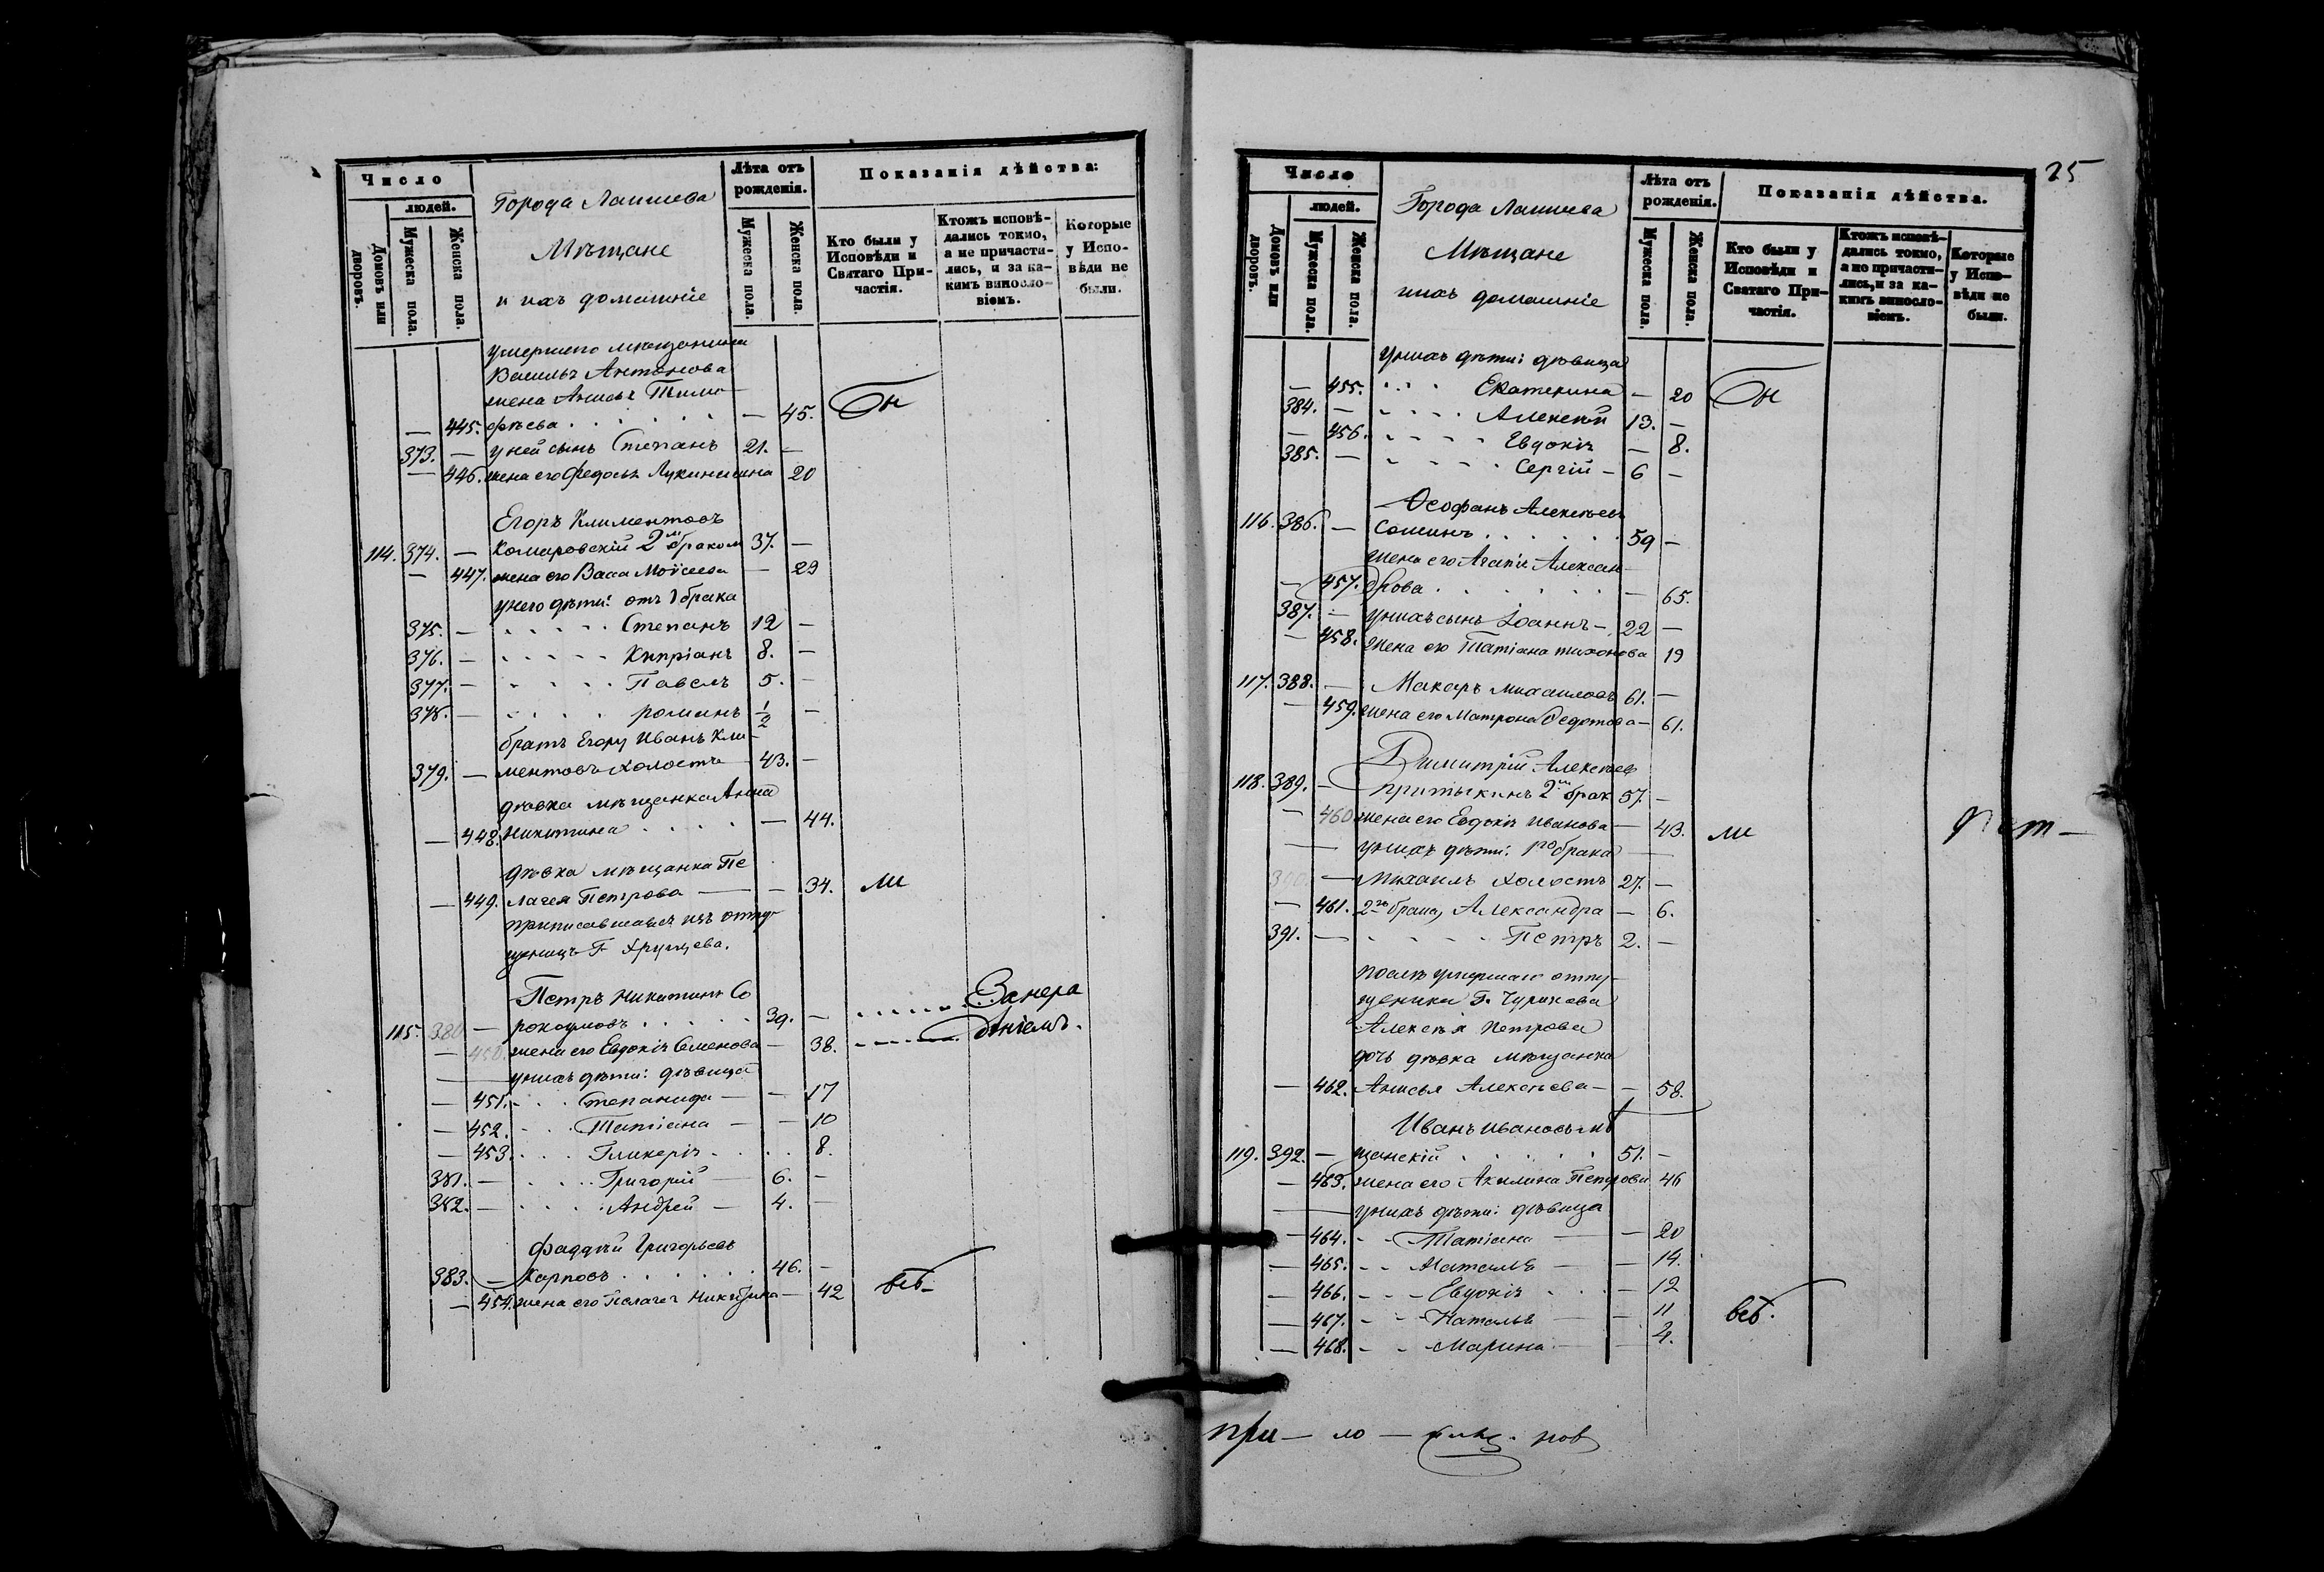 Число
людей.
Домовъ или дворовъ.
Мужеска пола.
Женска пола.
Города Лаишева
Мѣщане
и ихъ домашніе
Лѣта отъ рожденія.
Мужеска пола.
Женска пола.
Показанія дѣйства:
Кто были у Исповѣди и Святаго При-частія.
Ктожъ исповѣ-дались токмо, а не причасти-лись, и за ка-кимъ виносло-віемъ.
Которые у Испо-вѣди не были.
умершего мѣщанина
Василья Антонова
жена Анисья Тимо
— 445. фѣева . . . . . . — 45. Бы
373. — у ней сынъ Степанъ 21. —
— 446. жена его Федосья Лукинишна 20
Егоръ Климентовъ
114. 374. — Комаровскій 2мъ бракомъ 37. —
— 447. жена его Васса Моѵсеева — 29
у него дѣти: отъ 1 брака
375. — . . . . . Степанъ 12 —
376. — . . . . . Кипріанъ 8. —
377. — . . . . . Павелъ 5. —
378. — . . . . романъ 1/2 —
братъ Егору Иванъ Кли-
379. — ментовъ холостъ 43. —
дѣвка мѣщанка Анна
— 448. Никитина . . . . — 44.
дѣвка мѣщанка Пе
— 449. лагея Петрова — — 34. ли
приписавшаяся изъ отпу-
щеницъ Г. Хрущева.
Петръ Никитинъ Со
115. 380 — рокоумовъ . . . . . 39. — . . . . . . Занера
— 450. жена его Евдокія Семенова — 38. — — — — дѣніемъ.
у нихъ дѣти: дѣвица
— 451. - . . Степанида — — 17
— 452. - . . Татіана — — 10
— 453. . . . Гликерія . . . . 8.
381. — . . . . Григорій — 6. —
382. — . . . . Андрей — 4. —
Фаддѣй Григорьевъ
383. — Карповъ . . . . . . 46. —
— 454. жена его Пелагея Никитина — 42 всѣ-
25
Число
людей.
Домовъ или дворовъ.
Мужеска пола.
Женска пола.
Города Лаишева
Мѣщане
и ихъ домашніе
Лѣта отъ рожденія.
Мужеска пола.
Женска пола.
Показанія дѣйства.
Кто были у Исповѣди и Святаго При-частія.
Ктожъ исповѣ-дались токмо, а не причасти-лись, и за ка-кимъ виносло-віемъ.
Которые у Испо-вѣди не были.
у нихъ дѣти: дѣвица
— 455. . . . Екатерина — 20 Бы
384. — - . . . Алексѣй 13. —
— 456. - - - - Евдокія — 8.
385. — - - - - Сергій — 6 —
Ѳеофанъ Алексѣевъ
116. 386. — Сошинъ . . . . . . 59 —
жена его Агапія Алексан-
— 457. дрова . . . . . . — 65.
387. — у нихъ сынъ Іоаннъ — 22 —
— 458. жена его Татіана тихонова 19
117. 388. — Макаръ михаиловъ 61. —
— 459. жена его Матрона Ѳедотова — 61.
Димитрій Алексѣев
118. 389. — Притыкинъ 2мъ брак 57. —
— 460 жена его Евдокія Иванова — 43. ли
— у нихъ дѣти: 1го брака —
390 — михаилъ холостъ 27. —
— 461. 2го брака, Александра — 6.
391. — - - - - Петръ 2. —
послѣ умершаго отпу-
щеника Г. Чурикова
Алексѣя Петрова
дочь дѣвка мѣщанка
— 462. Анисья Алексѣева — — 58.
Иванъ Ивановъ мѣ
119. 392. — щанскій . . . . . 51. —
— 463. жена его Акилина Петрова 46
— у нихъ дѣти: дѣвица
— 464. - - Татіана — — 20
— 465. - - Наталья — — 14.
— 466. - - - Евдокія . . . — 12
— 467. - - - Наталья — — 11 всѣ.
— 468. - - - Марина — — 4.
при — ло —